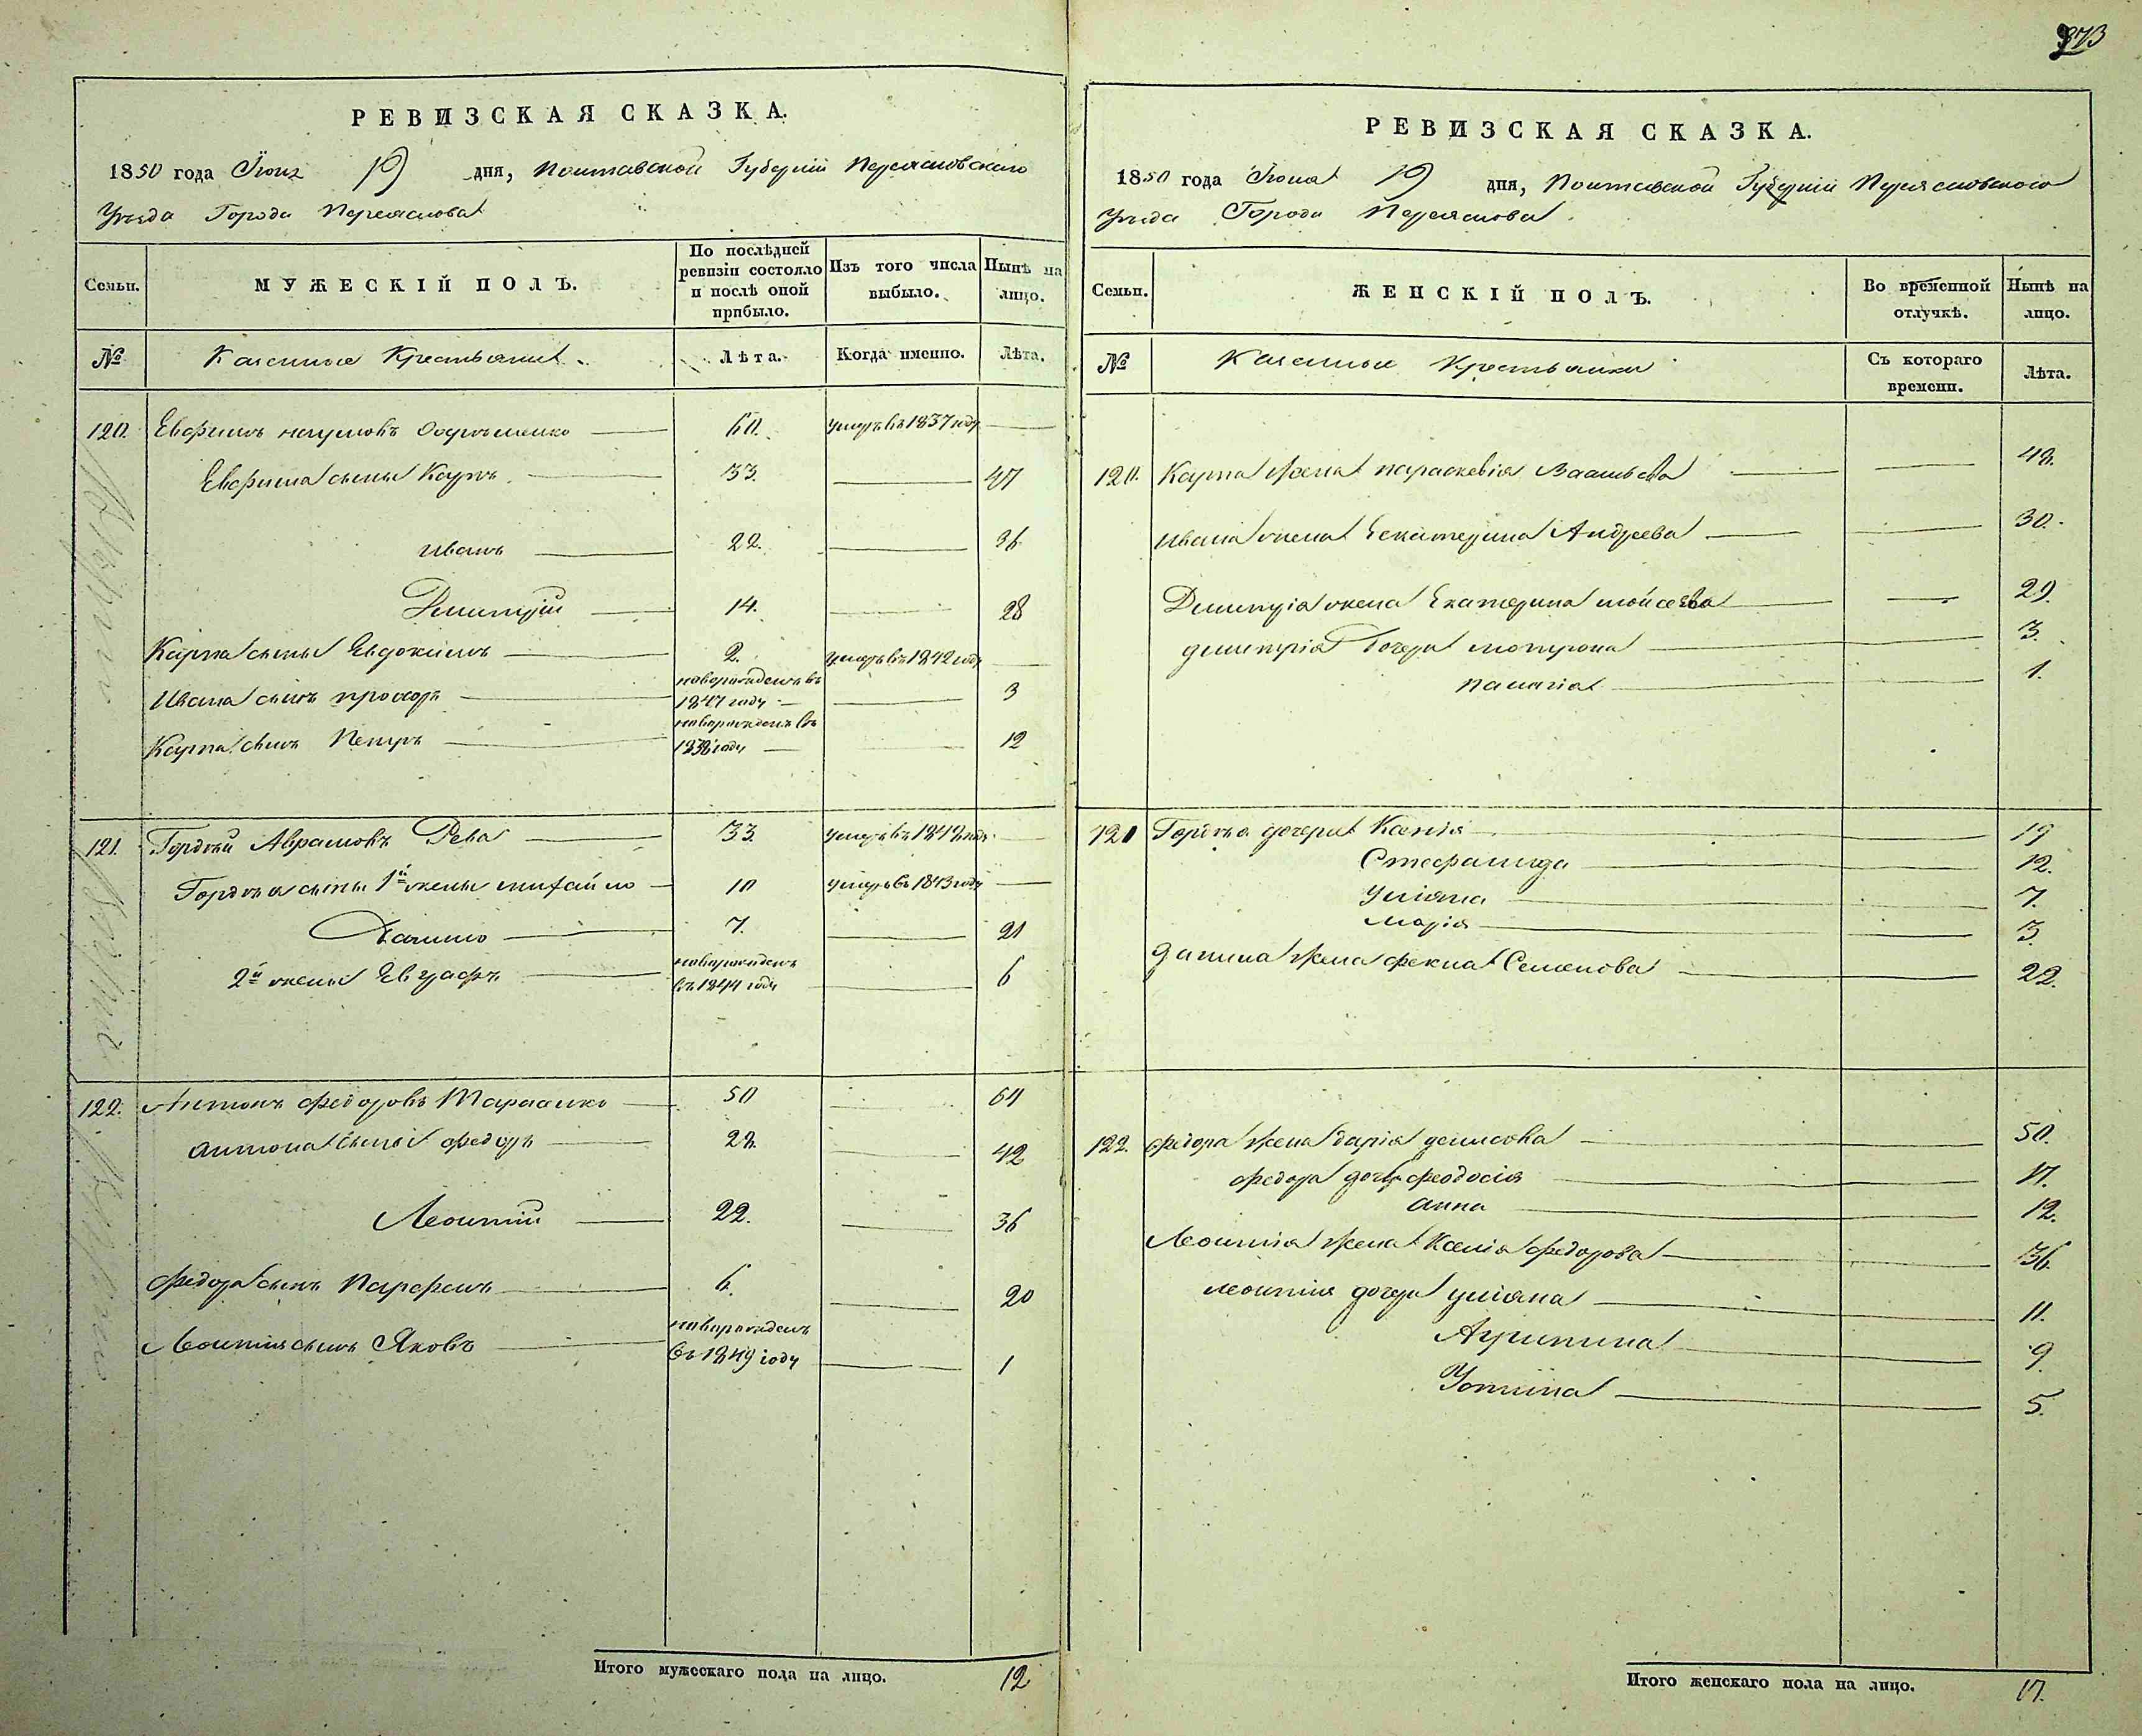 373
РЕВИЗСКАЯ СКАЗКА.
1850 года Іюня 19 дня, Полтавской Губерніи Переяславскаго
Уезда Города Переяслова
Семьи.
МУЖЕСКІЙ ПОЛЪ.
По послѣдней ревизіи состояло и послѣ оной прибыло.
Изъ того числа выбыло.
Нынѣ на лицо.
№
Казенные Крестьяне
Лѣта.
Когда именно.
Лѣта.
120. Евфимъ Наумовъ 60. умеръ въ 1837 году
Евфима сыны Карпъ 33. 47
Иванъ 22. 36
Димитрій 14. 28
Карпа сынъ Евдокимъ 2. умеръ въ 1842 году
Ивана сынъ Прохоръ новорожденъ въ 1847 году 3
Карпа сынъ Петръ новорожденъ въ 1838 году 12
121. Гордѣй Аврамовъ Рева 33. умеръ въ 1842 году
Гордѣя сыны 1й жены Михайло 10 умеръ въ 1843 году
Данило 7. 21
2й жены Евграфъ новорожденъ въ 1844 году 6
122. Антонъ Федоровъ Тарасенко 50 64
Антона сыны Федоръ 28. 42
Леонтій 22. 36
Федора сынъ Парфенъ 6. 20
Леонтія сынъ Яковъ новорожденъ въ 1849 году 1
Итого мужескаго пола на лицо. 12
РЕВИЗСКАЯ СКАЗКА.
1850 года Іюня 19 дня, Полтавской Губерніи Переясловского
Уезда Города Переяслова.
Семьи.
ЖЕНСКІЙ ПОЛЪ.
Во временной отлучкѣ.
Нынѣ на лицо.
№
Казенные Крестьянки
Съ котораго времени.
Лѣта.
120. Карпа жена Параскевія Васильева 48.
Ивана жена Екатерина Андреева 30.
Димитрія жена Екатерина Мойсеева 29.
Димитрія дочери Мотрона 3.
Палагія 1.
121 Гордѣя дочери Ксенія 19
Стефанида 12.
Уліяна 7.
Марія 3.
Данила жена Фекла Семенова 22.
122. Федора жена Дарія Денисова 50.
Федора дочь Феодосія 17.
Анна 12.
Леонтія жена Ксенія Федорова 36.
Леонтія дочери Уліяна 11.
Агрипина 9.
Устина 5.
Итого женскаго пола на лицо. 17.